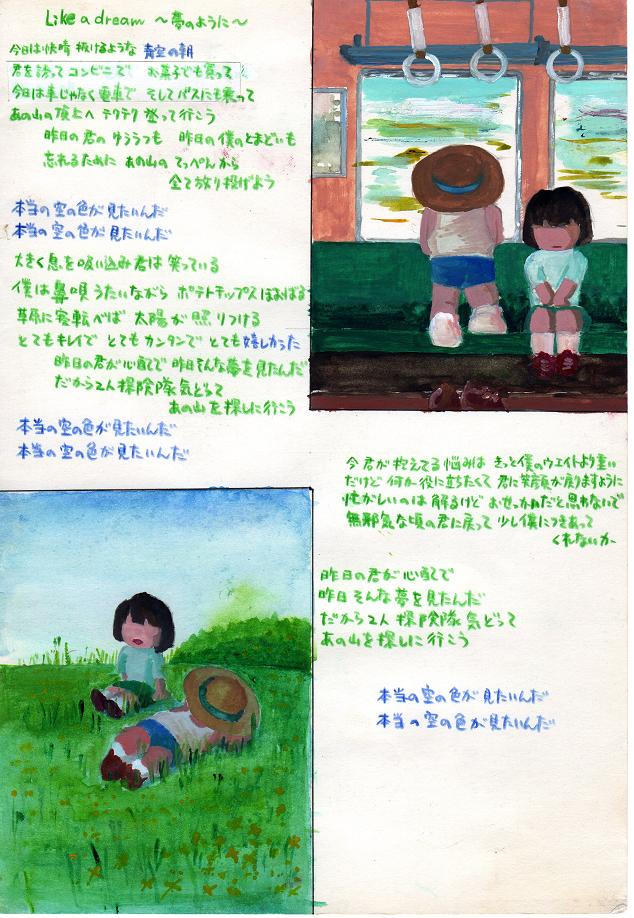 Like a dream ～夢のように～
今日は快晴 抜けるような 青空の朝
君を誘って コンビニで お菓子でも買って
今日は車じゃなく電車で そしてバスにも乗って
あの山の頂上へ テクテク 登って行こう
昨日の君の ゆううつも 昨日の僕のとまどいも
忘れるために あの山の てっぺんから
全て放り投げよう
本当の空の色が見たいんだ
本当の空の色が見たいんだ
大きく息を吸い込み君は 笑っている
僕は鼻唄うたいながら ポテトチップスほおばる
草原に寝転べば 太陽が 照りつける
とてもキレイで とてもカンタンで とても嬉しかった
昨日の君が心配で 昨日そんな夢を見たんだ
だから2人探険隊気どって
あの山を探しに行こう
本当の空の色が見たいんだ
本当の空の色が見たいんだ
今君が抱えてる悩みは きっと僕のウエイトより重い
だけど 何か役に立ちたくて 君に笑顔が戻りますように
忙がしいのは 解るけど おせっかいだと思わないで
無邪気な頃の君に戻って 少し僕につきあって
くれないか
昨日の君が心配で
昨日そんな夢を見たんだ
だから2人探険隊気どって
あの山を探しに行こう
本当の空の色が見たいんだ
本当の空の色が見たいんだ